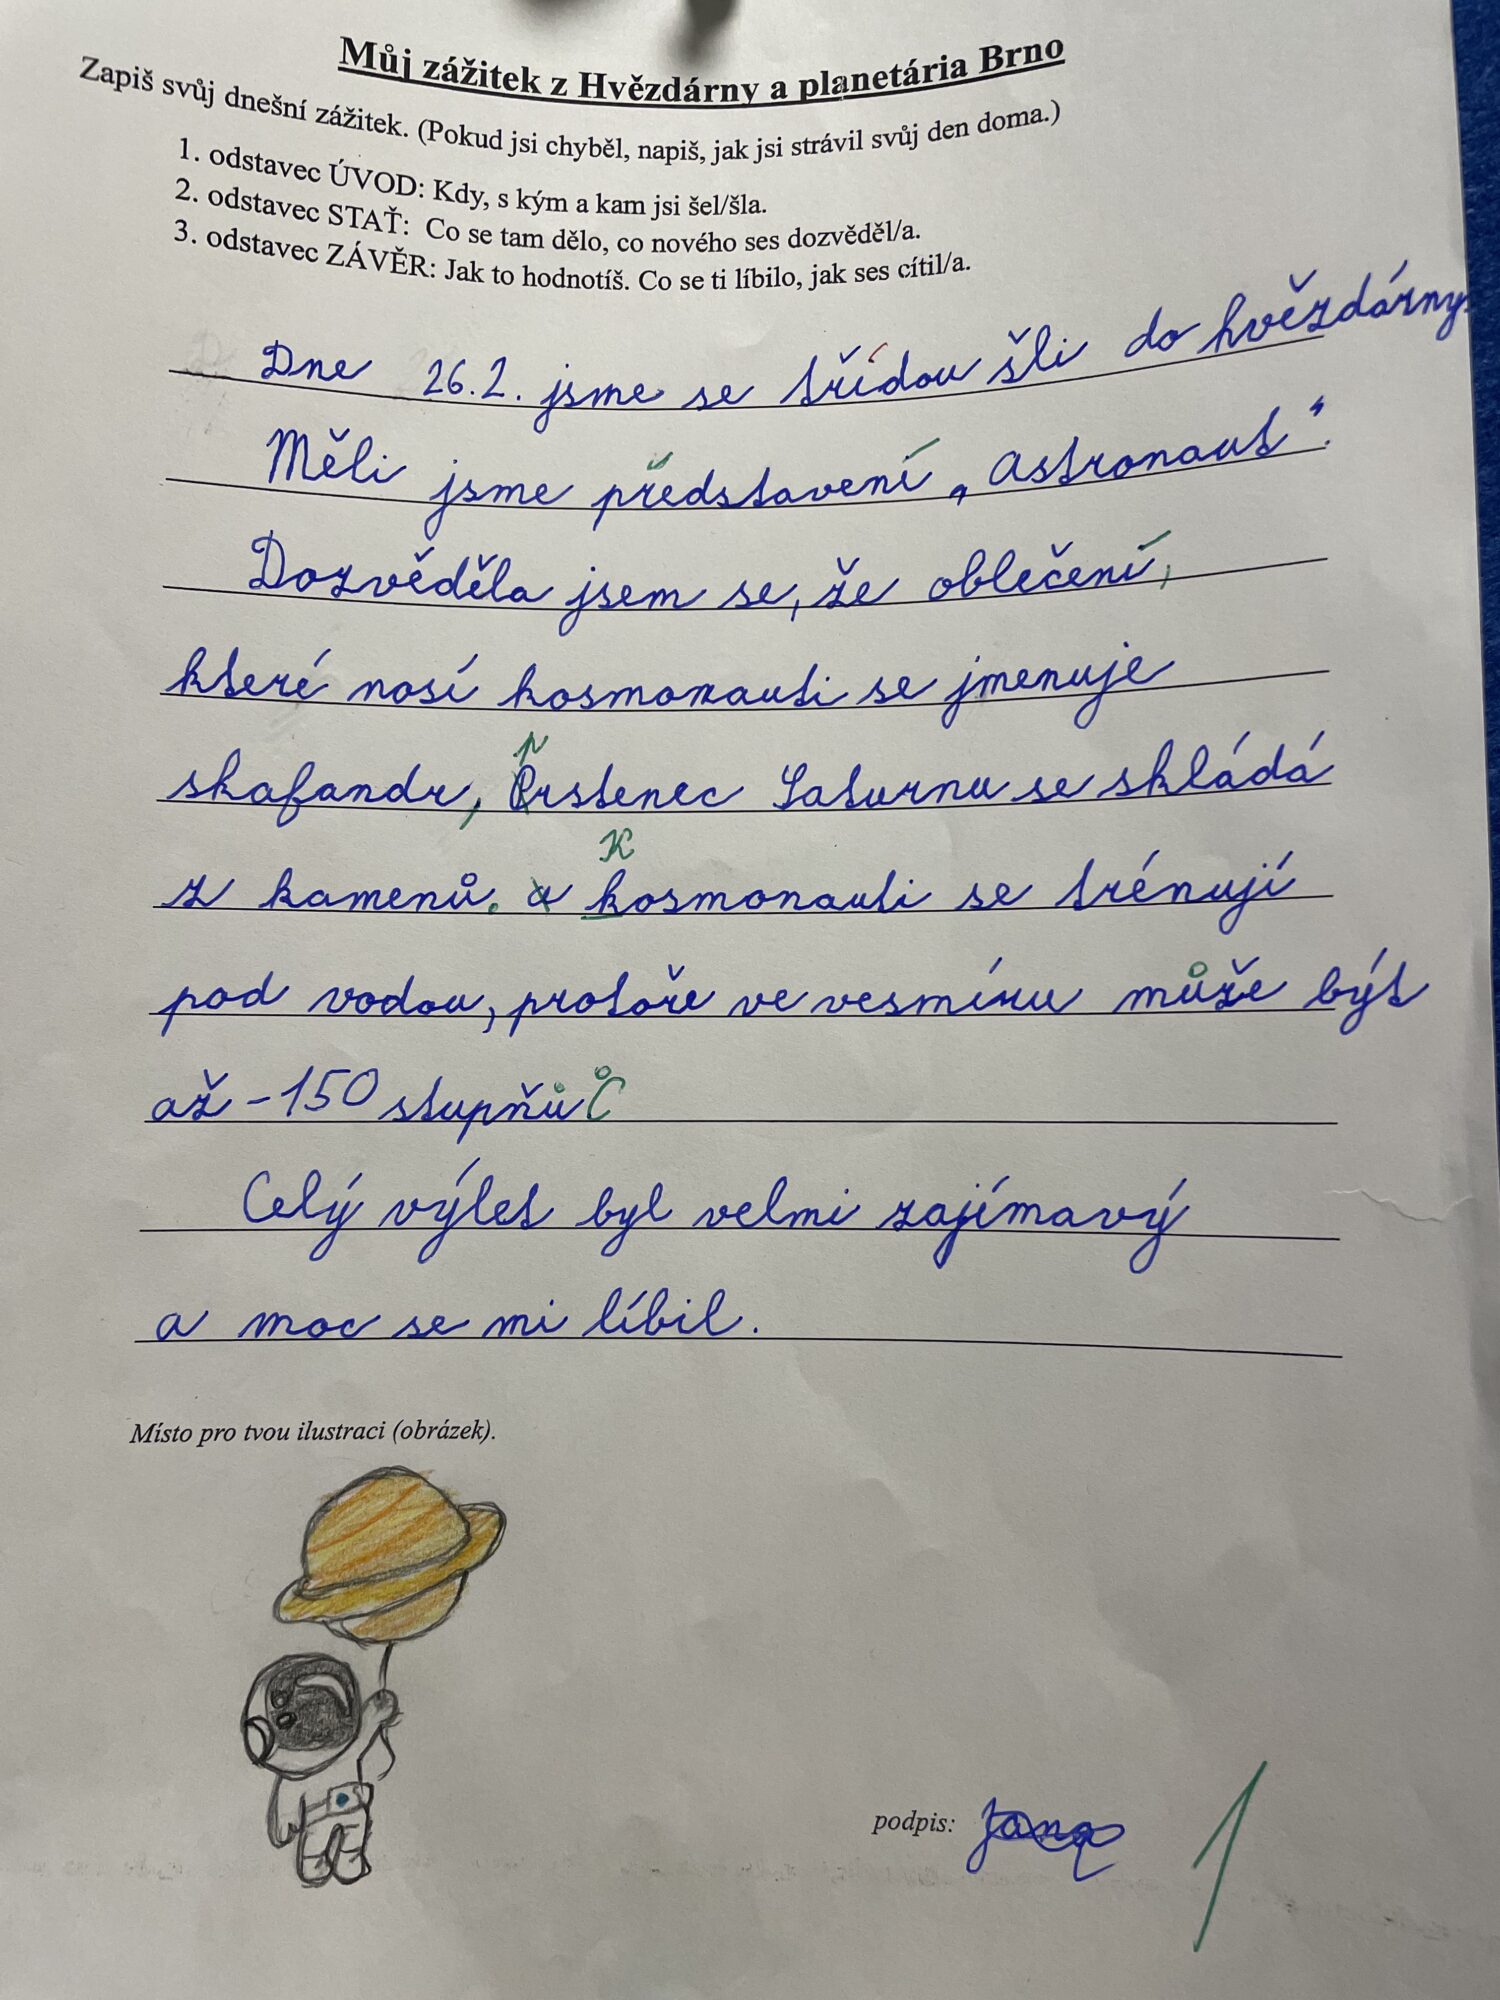 Můj zážitek z Hvězdárny a planetária Brno
Zapiš svůj dnešní zážitek. (Pokud jsi chyběl, napiš, jak jsi strávil svůj den doma.)
1. odstavec ÚVOD: Kdy, s kým a kam jsi šel/šla.
2. odstavec STAŤ: Co se tam dělo, co nového ses dozvěděl/a.
3. odstavec ZÁVĚR: Jak to hodnotíš. Co se ti líbilo, jak ses cítil/a.
Dne 26.2. jsme se třídou šli do hvězdárny.
Měli jsme představení „Astronaut“.
Dozvěděla jsem se, že oblečení,
které nosí kosmonauti se jmenuje
p
skafandr, Prstenec Saturnu se skládá
K
z kamenů. a kosmonauti se trénují
pod vodou, protoře ve vesmíru může být
až -150 stupňů °C
Celý výlet byl velmi zajímavý
a moc se mi líbil.
Místo pro tvou ilustraci (obrázek).
podpis: Jana
1